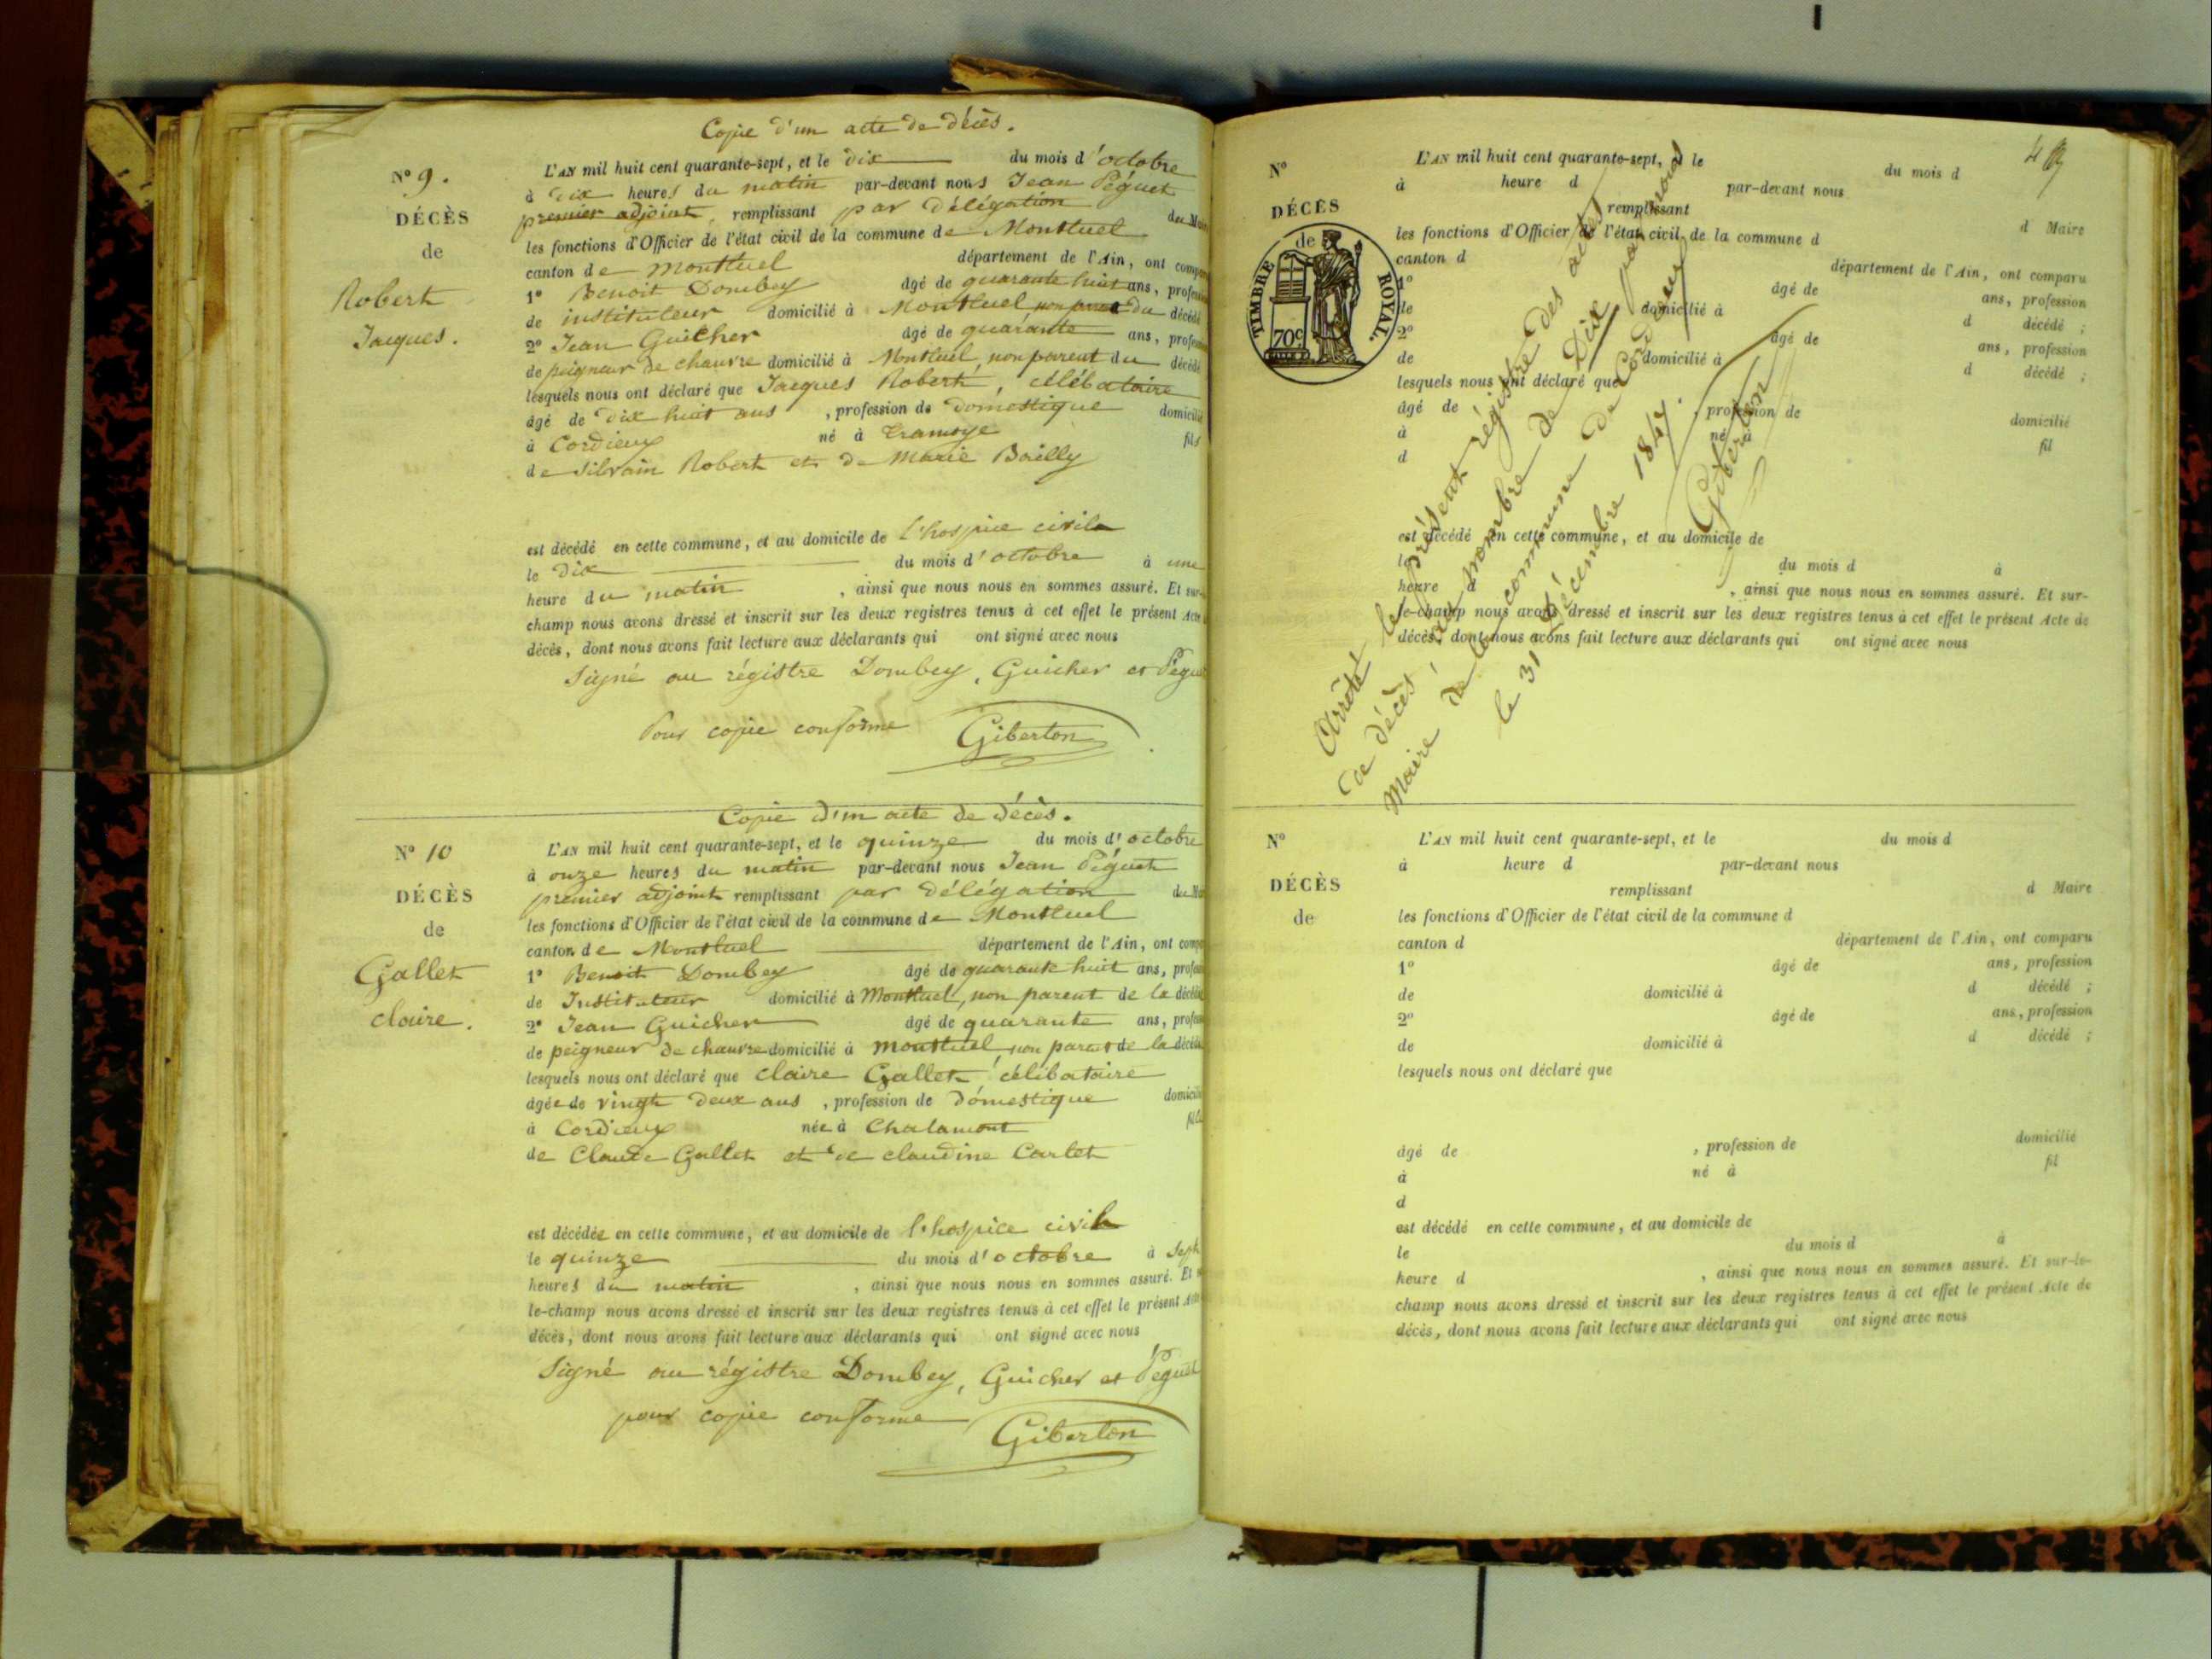 Copie d'un acte de décès.
N° 9.
L'AN mil huit cent quarante-sept, et le dix du mois d'octobre
à dix heures du matin par-devant nous Jean Péguet
DÉCÈS
premier adjoint, remplissant par délégation du
de
les fonctions d'Officier de l'état civil de la commune de Montluel
canton de Montluel département de l'Ain, ont
Robert
1° Benoit Dombey âgé de quarante huit ans,
de instituteur domicilié à Montluel, non parent du décédé
Jacques.
2° Jean Guicher âgé de quarante ans,
de peigneur de chauvre domicilié à Montluel, non parent du décédé
lesquels nous ont déclaré que Jacques Robert, célébataire
âgé de dix huit ans , profession de domestique
à Cordieux né à Tramoye fils
de Silvain Robert et de Marie Boilly
est décédé en cette commune, et au domicile de l'hospice civile
le dix du mois d'octobre à une
heure du matin , ainsi que nous nous en sommes assuré. Et sur-
champ nous avons dressé et inscrit sur les deux registres tenus à cet effet le présent Acte
décès, dont nous avons fait lecture aux déclarants qui ont signé avec nous
Signé au régistre Dombey, Guicher et Péguet
Pour copie conforme Giberton
Copie d'un acte de décès.
N° 10
L'AN mil huit cent quarante-sept, et le quinze du mois d'octobre
à onze heures du matin par-devant nous Jean Péguet
DÉCÈS
premier adjoint remplissant par délégation du
de
les fonctions d'Officier de l'état civil de la commune de Montluel
canton de Montluel département de l'Ain, ont
Gallet
1° Benoit Dombey âgé de quarante huit ans,
de Instituteur domicilié à Montluel, non parent de la
claire.
2° Jean Guicher âgé de quarante ans,
de peigneur de chauvre domicilié à montluel, non parent de la
lesquels nous ont déclaré que claire Gallet, célibataire
âgée de vingt deux ans , profession de domestique
à Cordieux née à Chalamont
de Claude Gallet et de claudine Carlet
est décédée en cette commune, et au domicile de l'hospice civile
le quinze du mois d'octobre à Sept
heures du matin , ainsi que nous nous en sommes assuré. Et
le-champ nous avons dressé et inscrit sur les deux registres tenus à cet effet le présent
décès, dont nous avons fait lecture aux déclarants qui ont signé avec nous
Signé au régistre Dombey, Guicher et Péguet
pour copie conforme Giberton
N°
L'AN mil huit cent quarante-sept, et le du mois d
à heure d par-devant nous
DÉCÈS
remplissant d Maire
de
les fonctions d'Officier de l'état civil de la commune d
canton d département de l'Ain, ont comparu
1° âgé de ans, profession
de domicilié à d décédé ;
2° âgé de ans, profession
de domicilié à d décédé ;
lesquels nous ont déclaré que
âgé de , profession de domicilié
à né à fil
d
est décédé en cette commune, et au domicile de
le du mois d à
heure d , ainsi que nous nous en sommes assuré. Et sur-
le-champ nous avons dressé et inscrit sur les deux registres tenus à cet effet le présent Acte de
décès, dont nous avons fait lecture aux déclarants qui ont signé avec nous
TIMBRE ROYAL.
70c
Arrêté le présent régistre des actes
de décès, au nombre de Dix par nous
Maire de la commune de Cordieux
le 31 décembre 1847.
Giberton
N°
L'AN mil huit cent quarante-sept, et le du mois d
à heure d par-devant nous
DÉCÈS
remplissant d Maire
de
les fonctions d'Officier de l'état civil de la commune d
canton d département de l'Ain, ont comparu
1° âgé de ans, profession
de domicilié à d décédé ;
2° âgé de ans, profession
de domicilié à d décédé ;
lesquels nous ont déclaré que
âgé de , profession de domicilié
à né à fil
d
est décédé en cette commune, et au domicile de
le du mois d à
heure d , ainsi que nous nous en sommes assuré. Et sur-le-
champ nous avons dressé et inscrit sur les deux registres tenus à cet effet le présent Acte de
décès, dont nous avons fait lecture aux déclarants qui ont signé avec nous